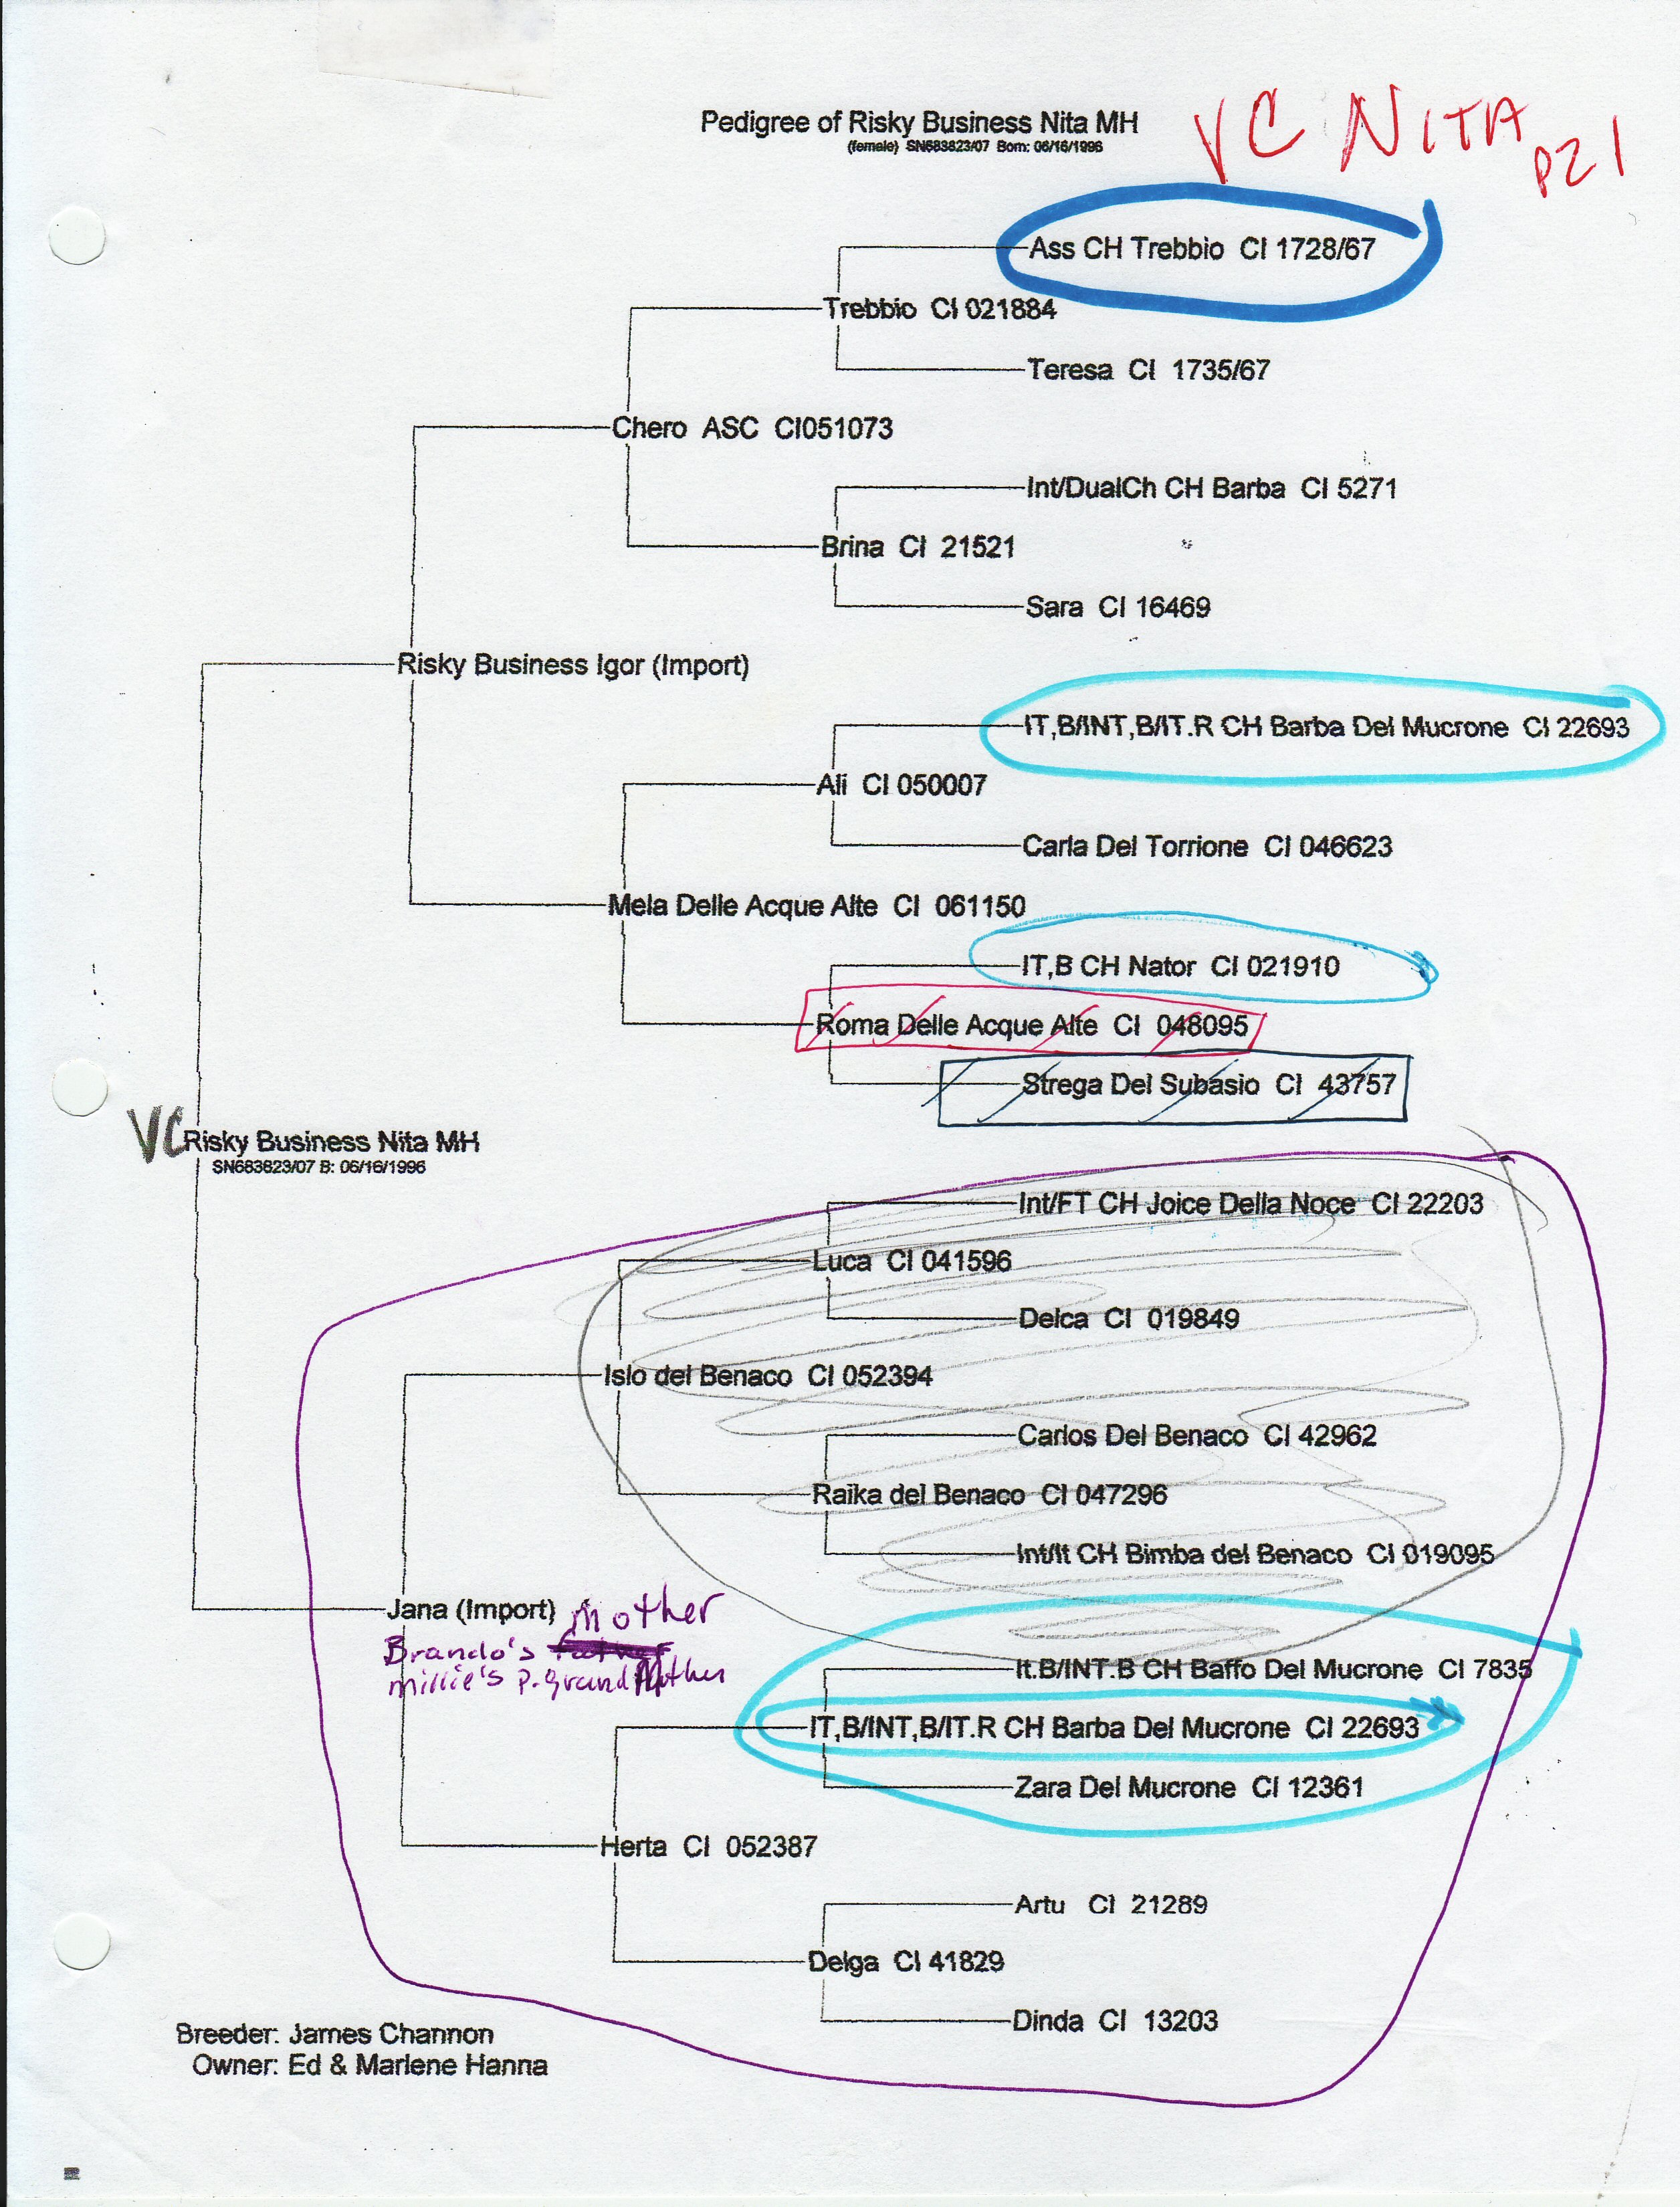 Pedigree of Risky Business Nita MH
(female) SN683823/07 Born: 06/16/1996
VC NITA
PZ 1
Ass CH Trebbio CI 1728/67
Trebbio CI 021884
Teresa CI 1735/67
Chero ASC CI051073
Int/DualCh CH Barba CI 5271
Brina CI 21521
Sara CI 16469
Risky Business Igor (Import)
IT,B/INT,B/IT.R CH Barba Del Mucrone CI 22693
Ali CI 050007
Carla Del Torrione CI 046623
Mela Delle Acque Alte CI 061150
IT,B CH Nator CI 021910
Roma Delle Acque Alte CI 048095
Strega Del Subasio CI 43757
VC Risky Business Nita MH
SN683823/07 B: 06/16/1996
Int/FT CH Joice Della Noce CI 22203
Luca CI 041596
Delca CI 019849
Islo del Benaco CI 052394
Carlos Del Benaco CI 42962
Raika del Benaco CI 047296
Int/It CH Bimba del Benaco CI 019095
Jana (Import) mother
Brando's
millie's p. grandMother
It.B/INT.B CH Baffo Del Mucrone CI 7835
IT,B/INT,B/IT.R CH Barba Del Mucrone CI 22693
Zara Del Mucrone CI 12361
Herta CI 052387
Artu CI 21289
Delga CI 41829
Dinda CI 13203
Breeder: James Channon
Owner: Ed & Marlene Hanna